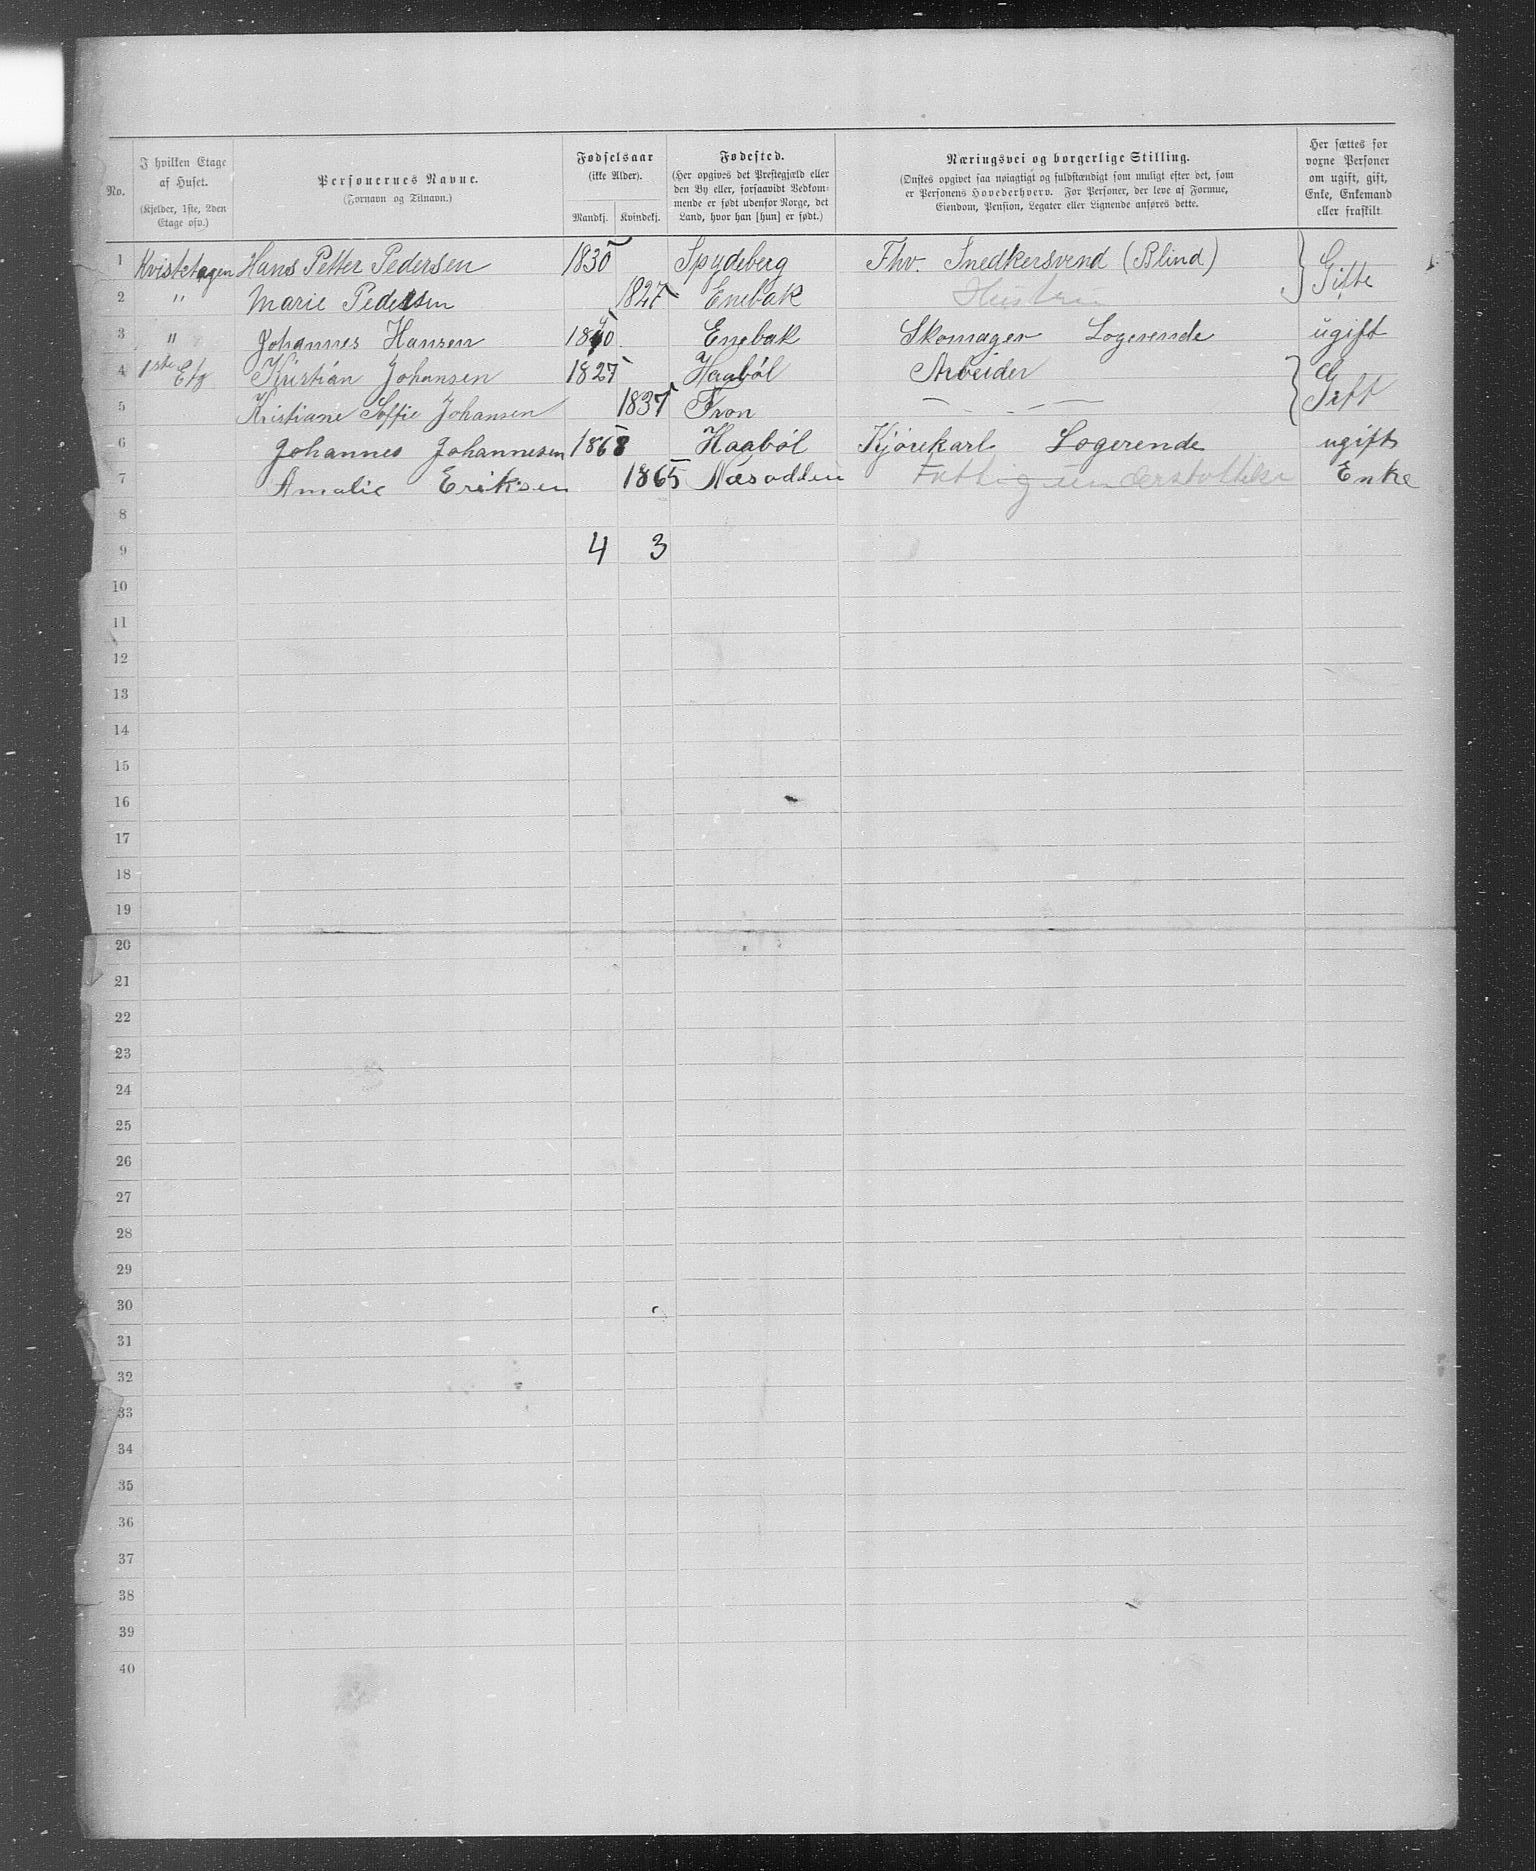 No.
I hvilken Etage af Huset. (Kjelder, 1ste, 2den Etage osv.)
Personernes Navne. (Fornavn og Tilnavn.)
Fødselsaar (ikke Alder). Mandkj. Kvindekj.
Fødested. (Her opgives det Prestegjæld eller den By eller, forsaavidt Vedkommende er født udenfor Norge, det Land, hvor han [hun] er født.)
Næringsvei og borgerlige Stilling. (Ønskes opgivet saa nøiagtigt og fuldstændigt som muligt efter det, som er Personens Hovederhverv. For Personer, der leve af Formue, Eiendom, Pension, Legater eller Lignende anføres dette.
Her sættes for voxne Personer om ugift, gift, Enke, Enkemand eller fraskilt
1 Kvistetagen Hans Petter Pedersen 1830 Spydeberg Fhv. Snedkersvend (Blind) Gifte
2 " Marie Pedersen 1827 Enebak Hustru
3 " Johannes Hansen 1840 Enebak Skomager Logerende ugift
4 1ste Etg Kristian Johansen 1827 Haabøl Arbeider Gift
5 Kristiane Soffie Johansen 1837 Fron — " —
6 Johannes Johannesen 1868 Haabøl Kjørekarl Logerende ugift
7 Amalie Eriksen 1865 Næsodden Fattigunderstøttelse Enke
8
9 4 3
10
11
12
13
14
15
16
17
18
19
20
21
22
23
24
25
26
27
28
29
30
31
32
33
34
35
36
37
38
39
40